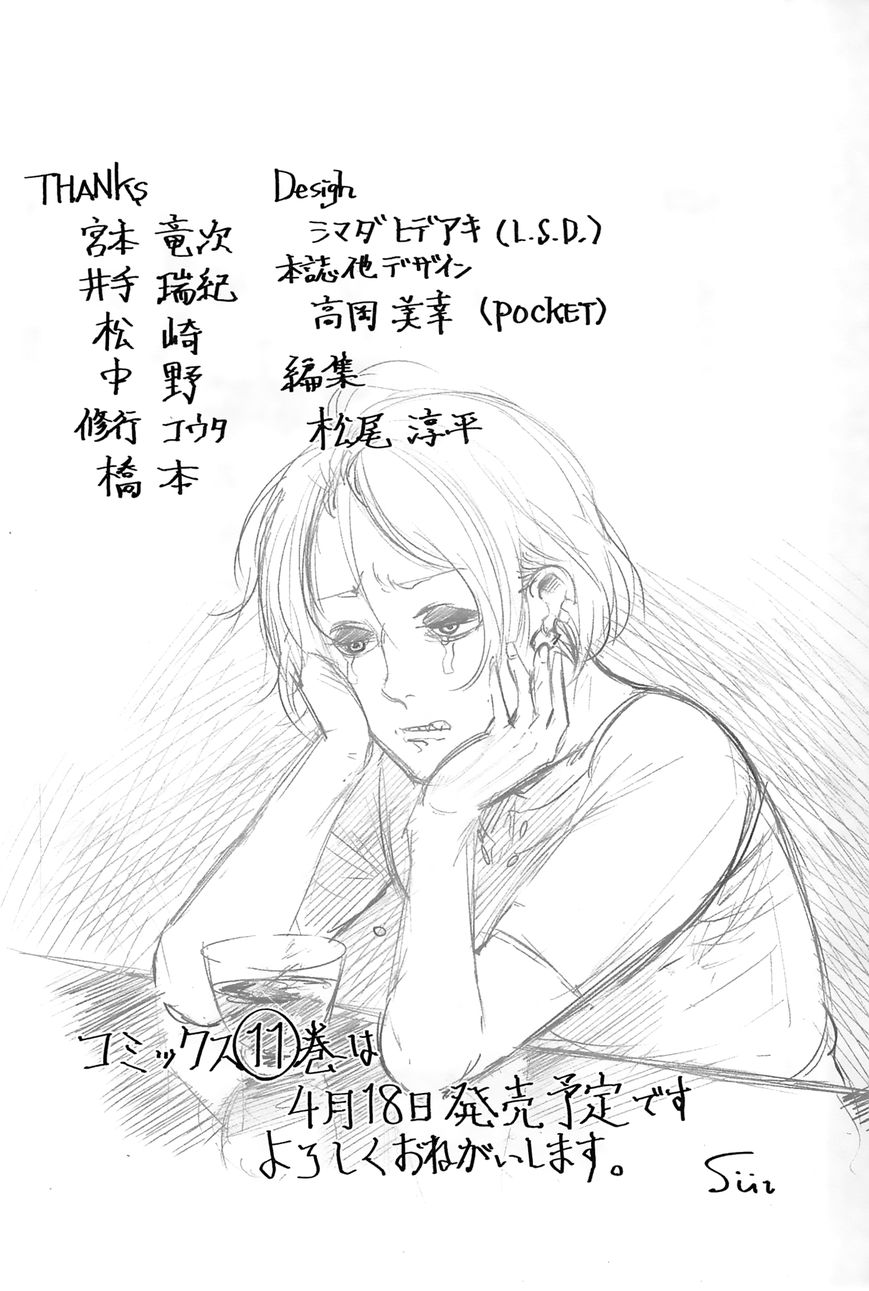 THANKS
宮本 竜次
井手 瑞紀
松崎
中野
修行 コウタ
橋本
Design
シマダヒデアキ(L.S.D.)
本誌他デザイン
高岡 美幸 (POCKET)
編集
松尾 淳平
コミックス⑪巻は
4月18日発売予定です
よろしくおねがいします。